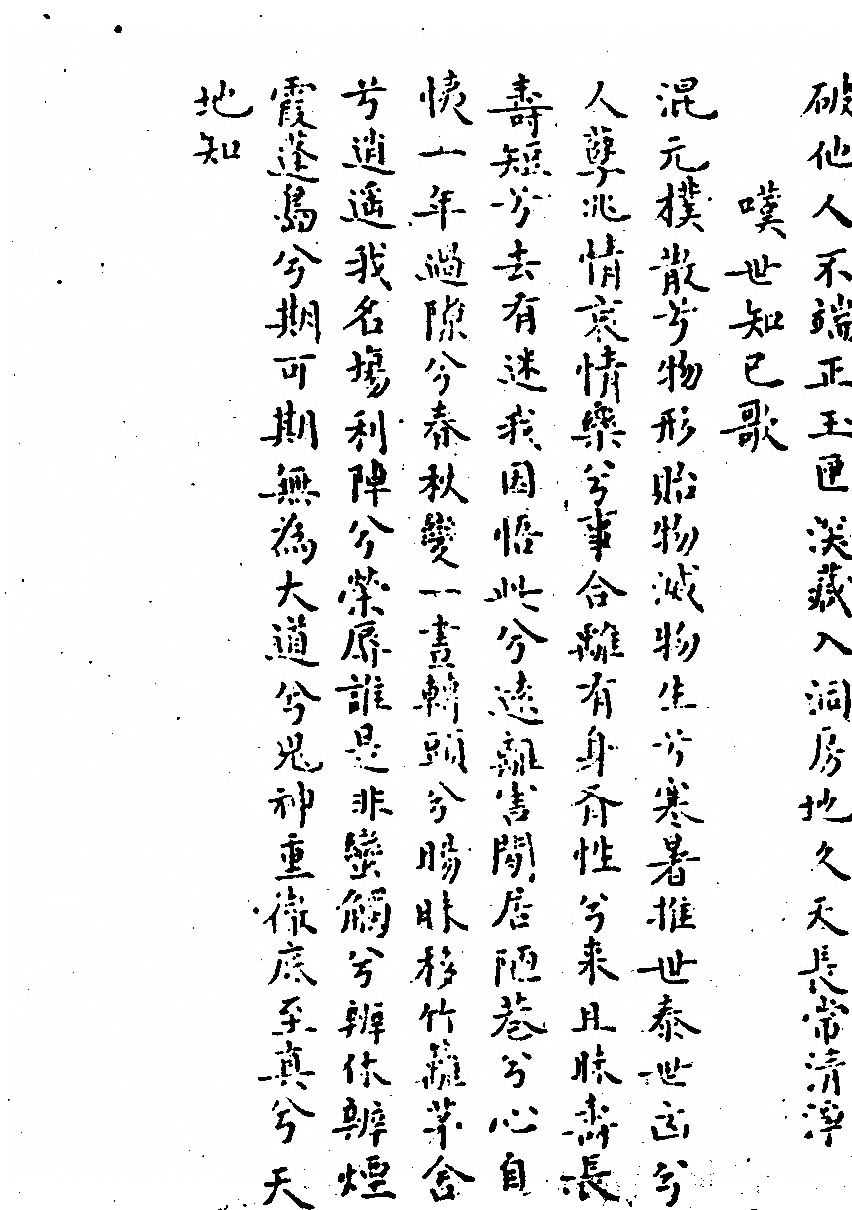 破他人不端正玉匣深藏入洞房地久天長常清淨
嘆世知已歌
混元樸散兮物形貽物滅物生兮寒暑推世泰世否兮
人孽兆情哀情樂兮事合離有身有性兮来且昧壽長
壽短兮去有迷我因悟此兮遠離害閑居陋巷兮心自
恞一年過隙兮春秋變一晝轉頭兮暘昧移竹籬茅舍
兮逍遥我名場利陣兮榮辱誰是非蠻觸兮辨休辨煙
霞蓬島兮期可期無為大道兮鬼神重徹底至真兮天
地知